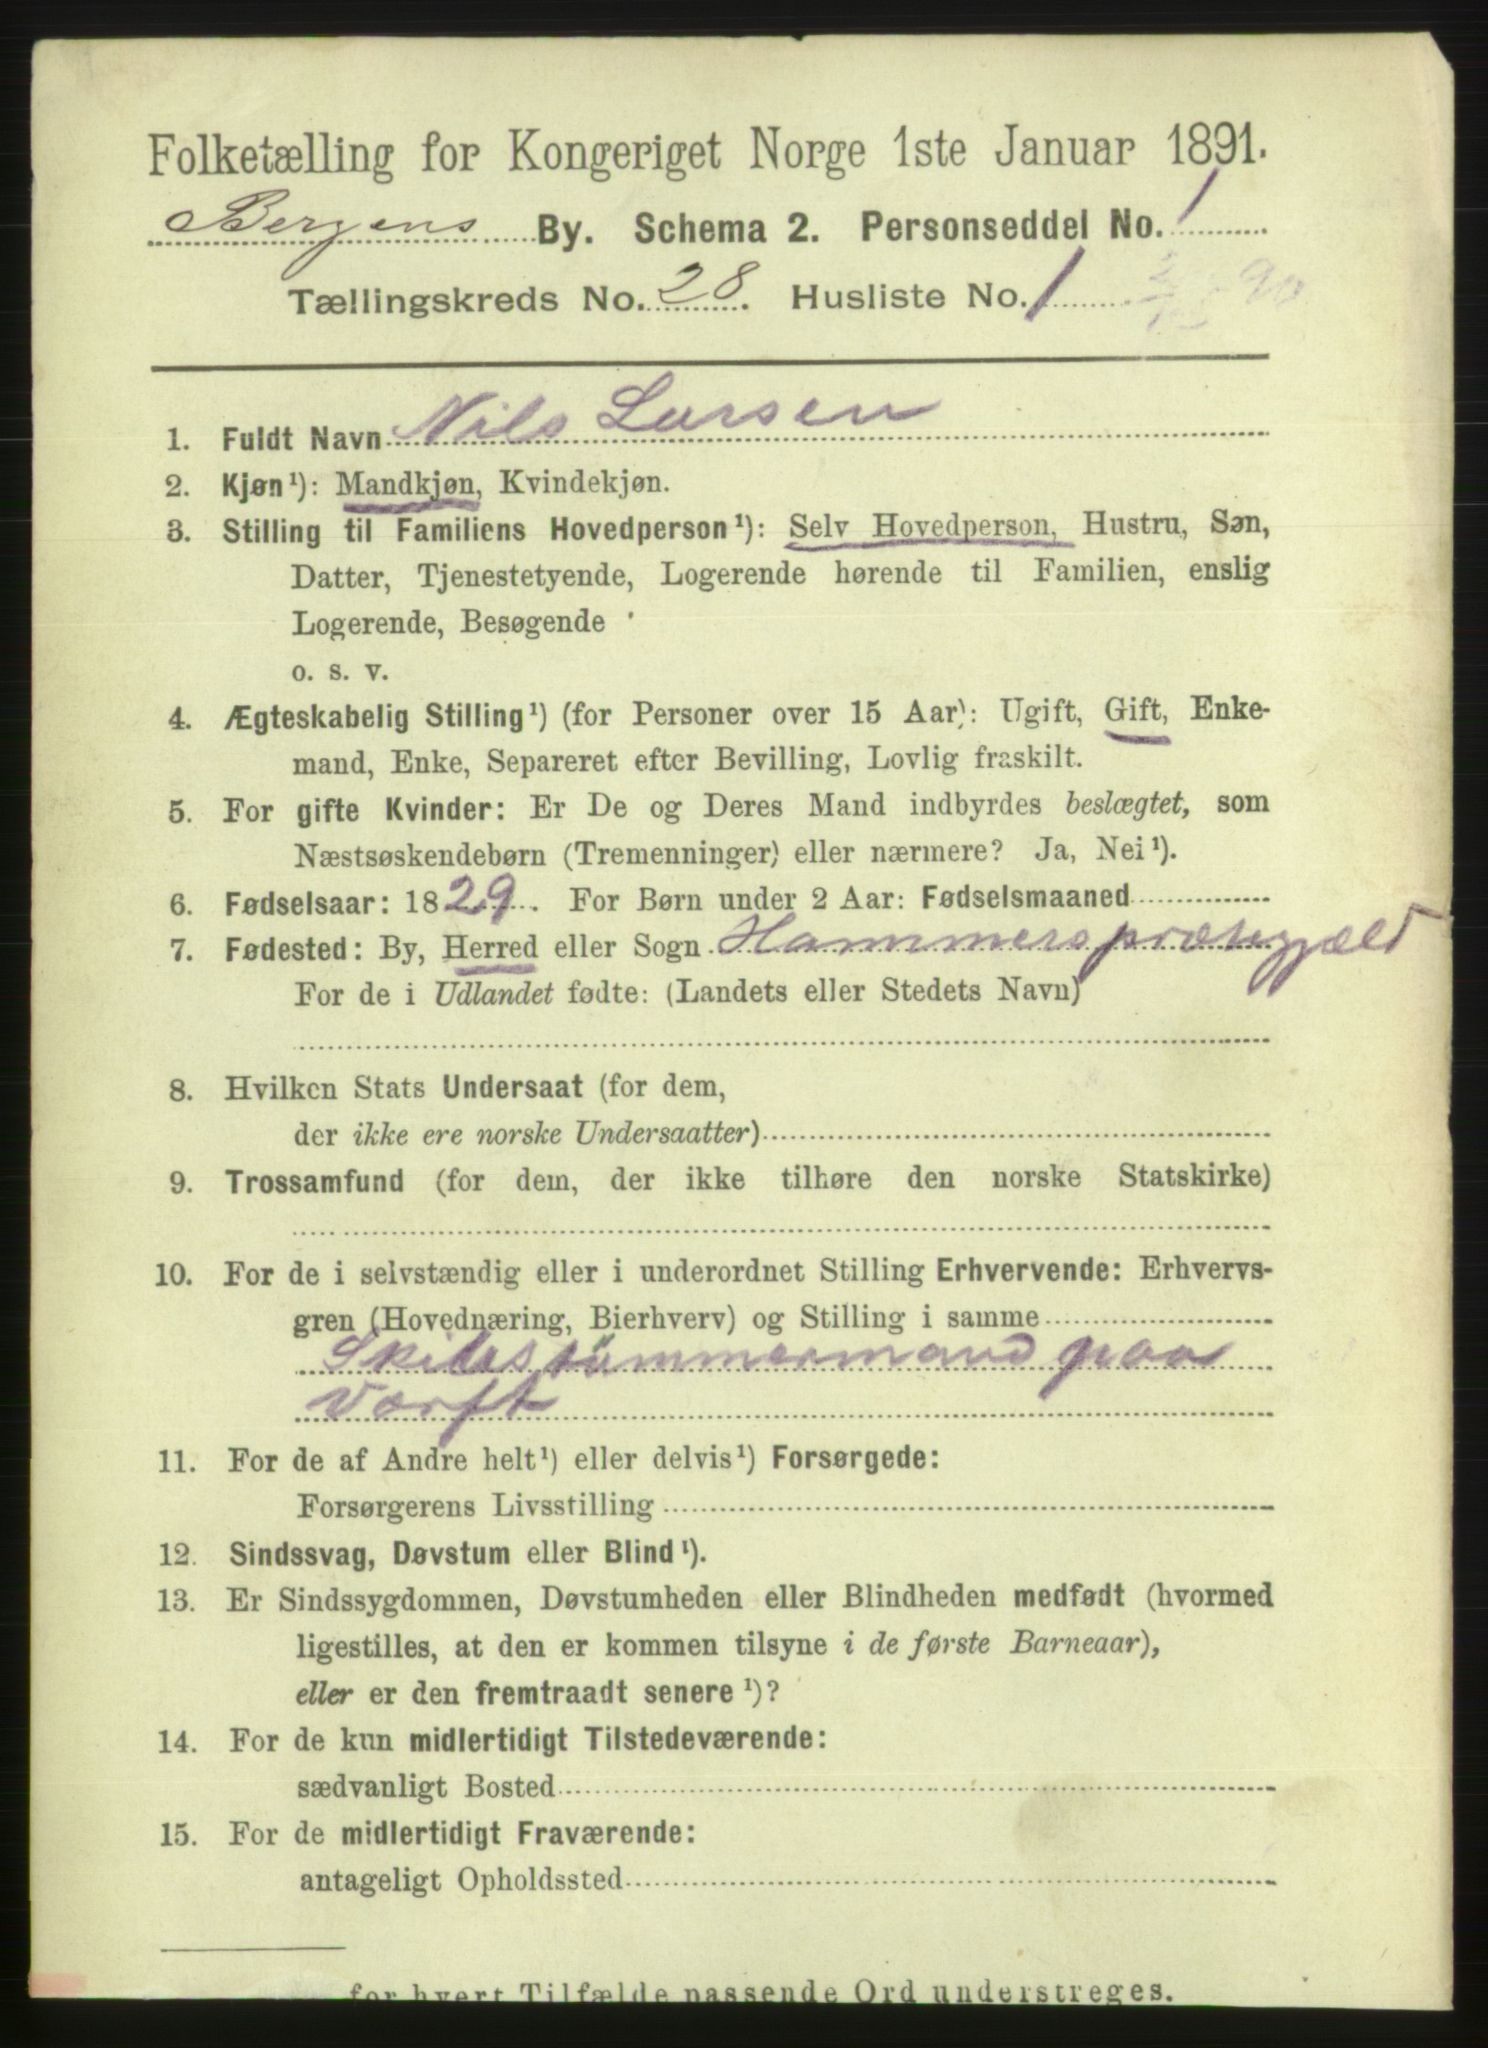 Folketælling for Kongeriget Norge 1ste Januar 1891.
Bergens By. Schema 2. Personseddel No. 1
Tællingskreds No. 28. Husliste No. 1
1. Fuldt Navn Nils Larsen
2. Kjøn¹): Mandkjøn, Kvindekjøn.
3. Stilling til Familiens Hovedperson¹): Selv Hovedperson, Hustru, Søn,
Datter, Tjenestetyende, Logerende hørende til Familien, enslig
Logerende, Besøgende
o. s. v.
4. Ægteskabelig Stilling¹) (for Personer over 15 Aar): Ugift, Gift, Enke-
mand, Enke, Separeret efter Bevilling, Lovlig fraskilt.
5. For gifte Kvinder: Er De og Deres Mand indbyrdes beslægtet, som
Næstsøskendebørn (Tremenninger) eller nærmere? Ja, Nei¹).
6. Fødselsaar: 1829. For Børn under 2 Aar: Fødselsmaaned
7. Fødested: By, Herred eller Sogn Hammers præstegjæld
For de i Udlandet fødte: (Landets eller Stedets Navn)
8. Hvilken Stats Undersaat (for dem,
der ikke ere norske Undersaatter)
9. Trossamfund (for dem, der ikke tilhøre den norske Statskirke)
10. For de i selvstændig eller i underordnet Stilling Erhvervende: Erhvervs-
gren (Hovednæring, Bierhverv) og Stilling i samme
Skibstømmermand paa
Værft
11. For de af Andre helt¹) eller delvis¹) Forsørgede:
Forsørgerens Livsstilling
12. Sindssvag, Døvstum eller Blind¹).
13. Er Sindssygdommen, Døvstumheden eller Blindheden medfødt (hvormed
ligestilles, at den er kommen tilsyne i de første Barneaar),
eller er den fremtraadt senere¹)?
14. For de kun midlertidigt Tilstedeværende:
sædvanligt Bosted
15. For de midlertidigt Fraværende:
antageligt Opholdssted
for hvert Tilfælde passende Ord understreges.